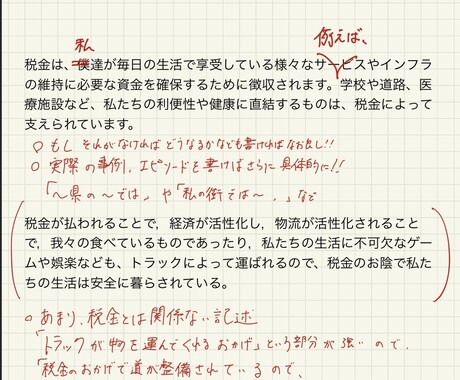 私
例えば、
税金は、僕達が毎日の生活で享受している様々なサービスやインフラ
の維持に必要な資金を確保するために徴収されます。学校や道路、医
療施設など、私たちの利便性や健康に直結するものは、税金によって
支えられています。
○ もし それがなければ どうなるかなども書ければなお良し!!
○ 実際の事例、エピソードを書けばさらに具体的に!!
「〜県の〜では」や「私の街では〜、」など
税金が払われることで，経済が活性化し，物流が活性化されること
で，我々の食べているものであったり，私たちの生活に不可欠なゲー
ムや娯楽なども、トラックによって運ばれるので、税金のお陰で私た
ちの生活は安全に暮らされている。
○ あまり、税金とは関係ない記述
「トラックが物を運んでくれるおかげ」という部分が強いので、
「税金のおかげで道が整備されているので、